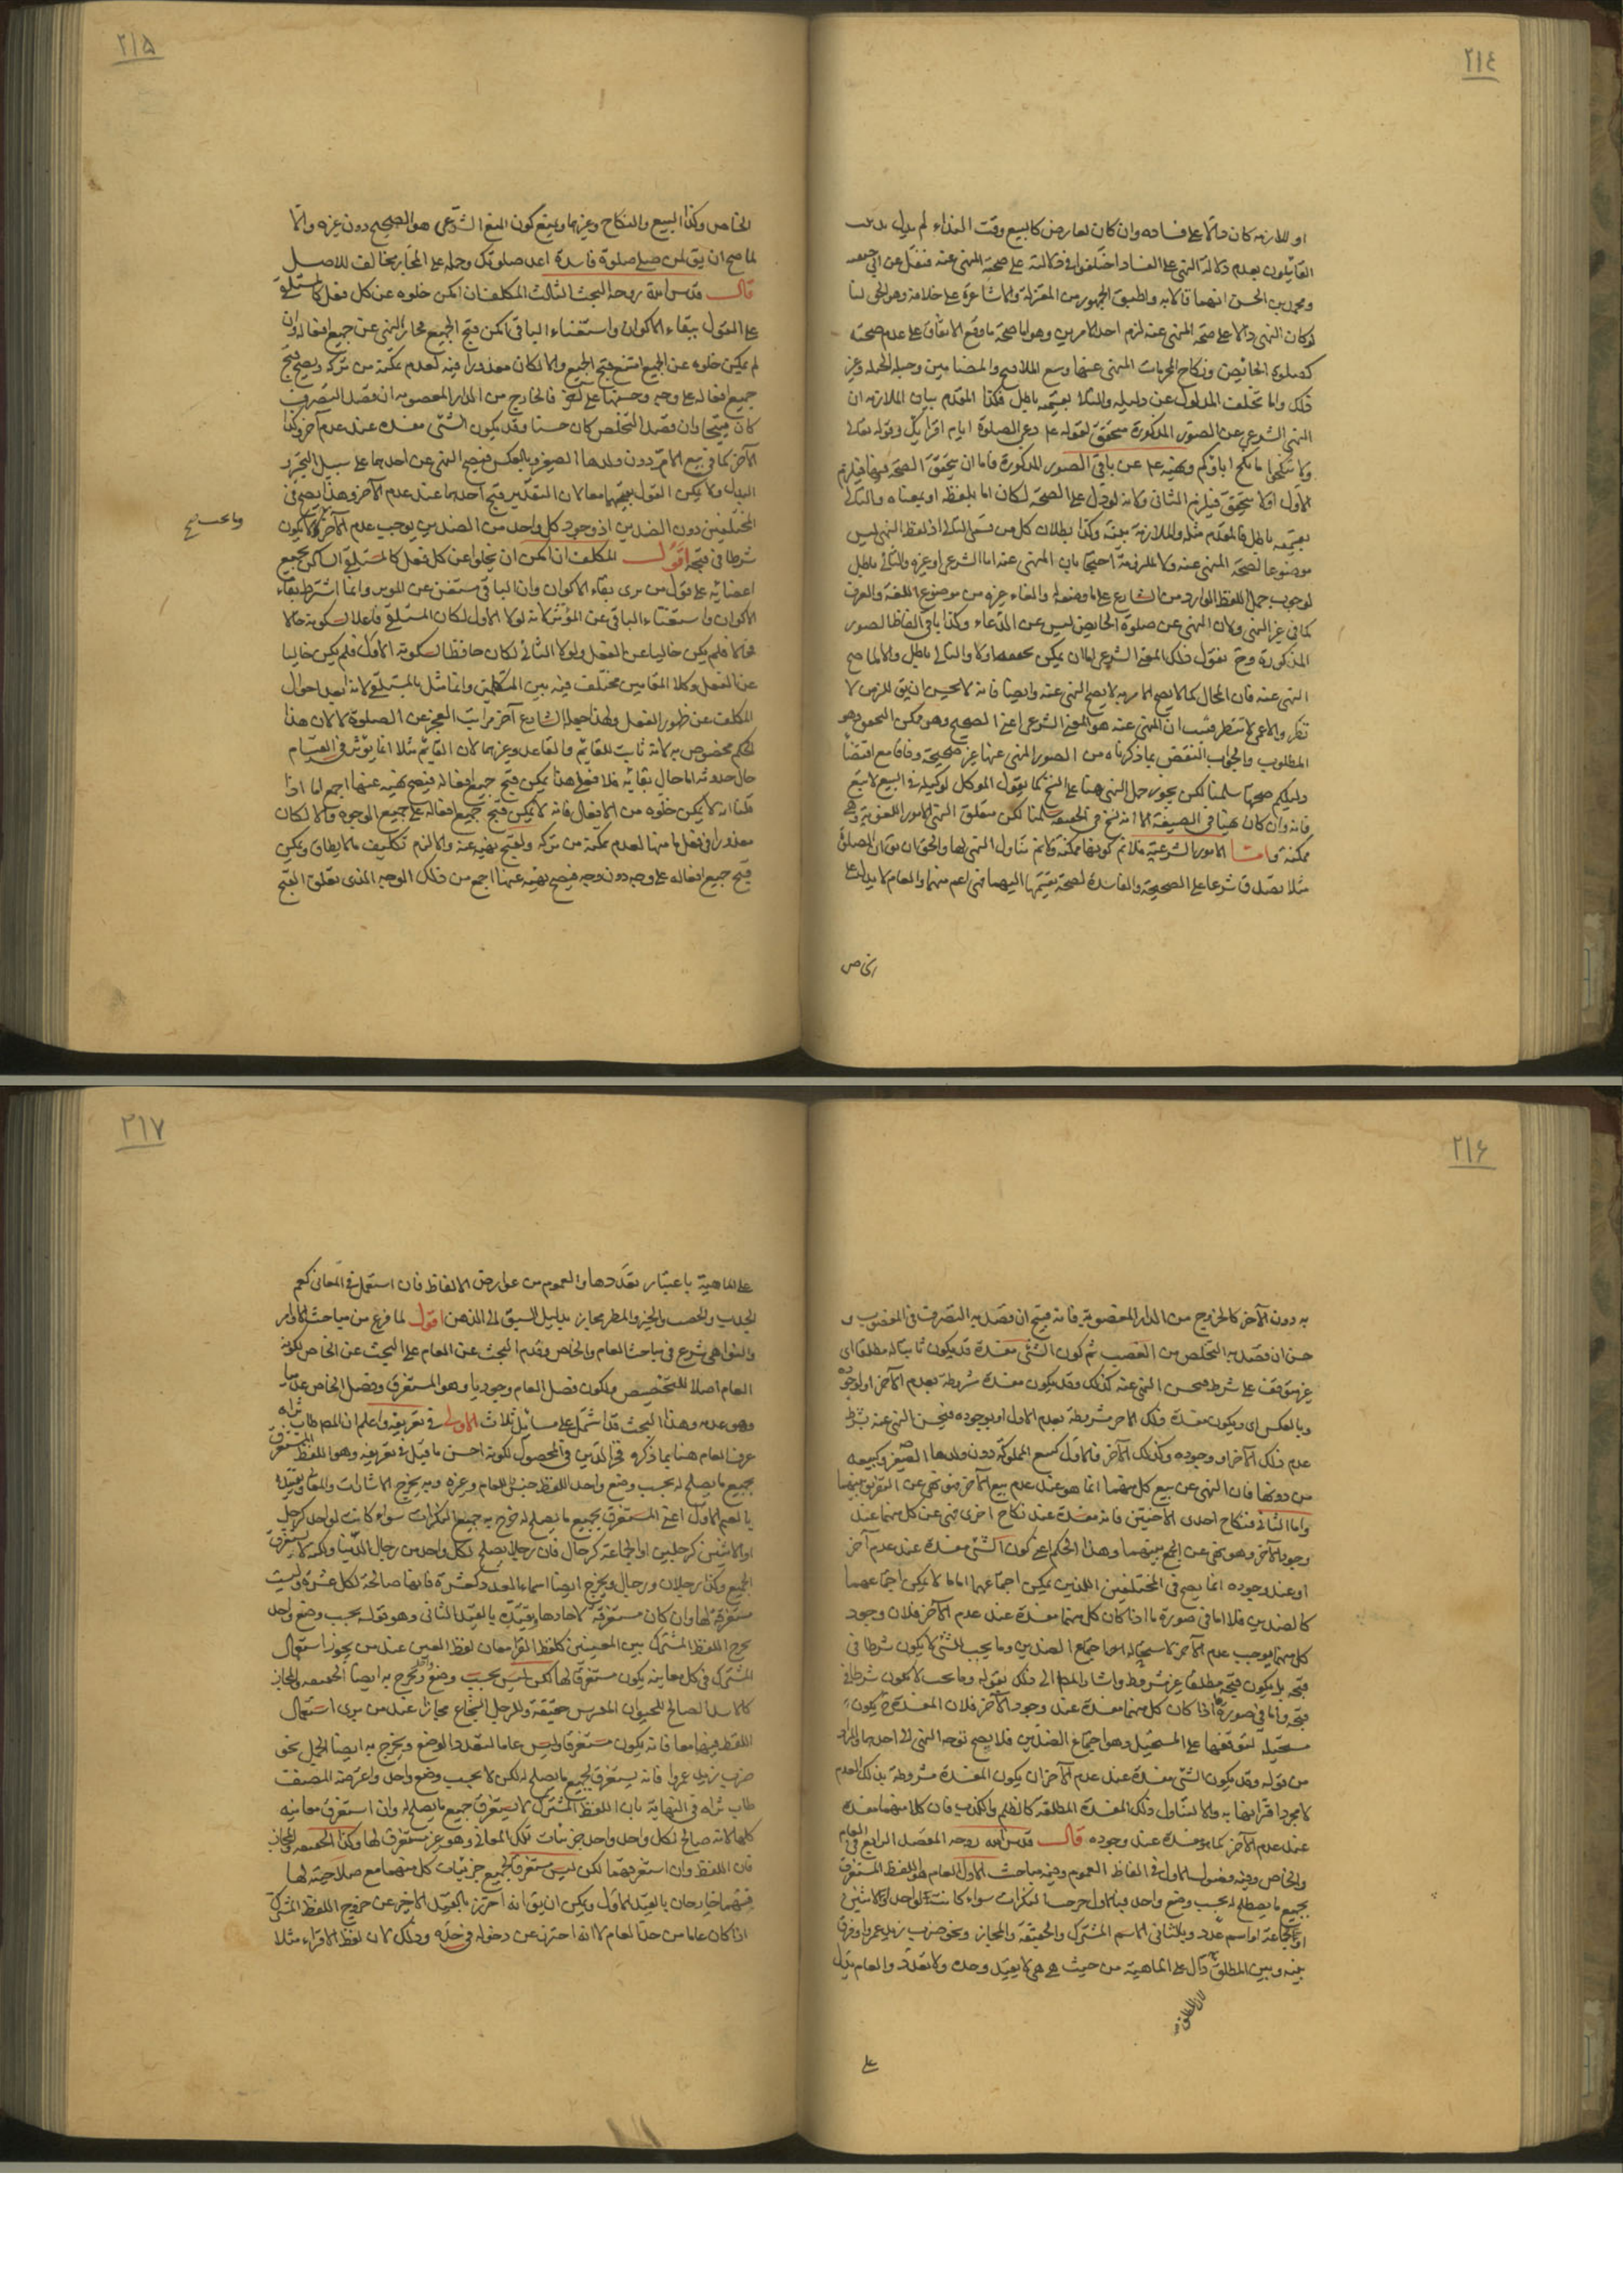 ٢١٤
او للازمه كان دالا على فساده وان كان لعارض كالبيع وقت النداء لم يدل
القائلون بعدم دلالة النهى على الفساد اختلفوا فى دلالته على صحة المنهى عنه فنقل عن ابى حنيفه
ومحمد بن الحسن انهما قالا به واطبق الجمهور من المعتزلة والاشاعرة على خلافه وهو الحق لنا
لو كان النهى دالا على صحة المنهى عنه لزم احد الامرين وهو اما صحة ما وقع الاتفاق على عدم صحته
كصلوة الحائض ونكاح المحرمات المنهى عنها وبيع الملاقيح والمضامين وحبل الحبله وغير
ذلك واما تخلف المدلول عن دليله والتالى بقسميه باطل فكذا المقدم بيان الملازمه ان
النهى الشرعى عن الصور المذكورة متحقق لقوله عم دعى الصلوة ايام اقرائك وقوله تعالى
ولا تنكحوا ما نكح اباؤكم ونهيه عم عن باقى الصور المذكورة فاما ان يتحقق الصحة فيها فيلزم
الاول او لا يتحقق فيلزم الثانى ولانه لو دل على الصحة لكان اما بلفظه او بمعناه والتالى
بقسميه باطل فالمقدم مثله والملازمة بينة وكذا بطلان كل من قسمى التالى اذ لفظ النهى ليس
موضوعا لصحة المنهى عنه ولا ملزومة احتجا بان المنهى عنه اما الشرعى او غيره والثانى باطل
لوجوب حمل اللفظ الوارد من الشارع على ما وضعه والغاء غيره من موضوع اللغة والعرف
كما فى غير النهى ولان النهى عن صلوة الحايض ليس عن الدعاء وكذا باقى الفاظ الصور
المذكورة وح نقول ذلك المعنى الشرعى اما ان يمكن تحققه اولا والتالى باطل والا لما صح
النهى عنه فان المحال كما لا يصح الامر به لا يصح النهى عنه وايضا فانه لا يحسن ان يق للزمن لا
تطر وللاعمى لا تنظر فثبت ان المنهى عنه هو المعنى الشرعى اعنى الصحيح وهو ممكن التحقق وهو
المطلوب والجواب النقض بما ذكرناه من الصور المنهى عنها غير صحيحة وفاقا مع اقتضا
دليلكم صحتها سلمنا لكن يجوز حمل النهى هنا على النسخ كما يقول الموكل لوكيله فى البيع لا تبع
فانه وان كان نهيا فى الصيغة الا انه نسخ فى الحقيقة سلمنا لكن متعلق النهى الامور اللغوية وهى
ممكنة واما الامور الشرعية فلا نم كونها ممكنة ولا نم تناول النهى لها والحق ان يق ان الصلوة
مثلا يصدق شرعا على الصحيحة والفاسدة لصحة تقسيمها اليهما فهى اعم منهما والعام لا يدل على
الخاص
٢١٥
الخاص وكذا البيع والنكاح وغيرهما ويمنع كون المعنى الشرعى هو الصحيح دون غيره والا
لما صح ان يق لمن صلى صلوة فاسدة اعد صلوتك وحمله على المجاز مخالف للاصل
قال قدس الله روحه البحث الثالث المكلف ان امكن خلوه عن كل فعل كالمستلقى
على القول ببقاء الاكوان واستغناء الباقى امكن قبح الجميع فجاز النهى عن جميع افعاله وان
لم يمكن خلوه عن الجميع امتنع قبح الجميع والا لكان معذورا فيه لعدم تمكنه من تركه ويصح قبح
جميع افعاله على وجه وحسنها على آخر فالخارج من الدار المغصوبه ان قصد التصرف
كان قبيحا وان قصد التخلص كان حسنا وقد يكون الشئ مفسدة عند عدم آخر وكذا
الآخر كما فى بيع الام دون ولدها الصغير وبالعكس فيصح النهى عن احدهما على سبيل التخير و
البدل ولا يمكن القول بقبحهما معا لان التقدير قبح احدهما عند عدم الآخر وهذا يصح فى
المختلفين دون الضدين اذ وجود كل واحد من الضدين يوجب عدم الآخر ولا يكون
وما يجب صح
شرطا فى قبحه اقول المكلف ان امكن ان يخلوا عن كل فعل كالمستلقى الساكن بجميع
اعضائه على قول من يرى بقاء الاكوان وان الباقى مستغن عن الموثر وانما اشترط بقاء
الاكوان واستغناء الباقى عن المؤثر لانه لولا الاول لكان المستلقى فاعلا لسكونه حالا
فحالا فلم يكن خاليا عن الفعل ولولا الثانى لكان حافظا لسكونه الاول فلم يكن خاليا
عن الفعل وكلا المقامين مختلف فيه بين المتكلمين وانما مثل بالمستلقى لانه ابعد احوال
المكلف عن ظهور الفعل ولهذا جعله الشارع آخر مراتب العجز عن الصلوة لا لان هذا
الحكم مخصوص به لانه ثابت للقائم والقاعد وغيرهما لان القائم مثلا انما يؤثر فى القيام
حال حدوثه اما حال بقائه فلا فعلى هذا يمكن قبح جميع افعاله فيصح نهيه عنها اجمع اما اذا
قلنا انه لا يمكن خلوه من الافعال فانه لا يمكن قبح جميع افعاله على جميع الوجوه والا لكان
معذورا فى فعل ما منها لعدم تمكنه من تركه ولقبح نهيه عنه والا لزم تكليف ما لا يطاق ويمكن
قبح جميع افعاله على وجه دون وجه فيصح نهيه عنها اجمع من ذلك الوجه الذى تعلق القبح
٢١۶
به دون الآخر كالخروج من الدار المغصوبة فانه قبيح ان قصد به التصرف فى المغصوب و
حسن ان قصد به التخلص من الغصب ثم كون الشئ مفسدة قد يكون ثابتا له مطلقا اى
غير متوقف على شرط فيحسن النهى عنه كذلك وقد يكون مفسدة شريطة بعدم الآخر او لوجوده
وبالعكس اى ويكون مفسدة ذلك الاخر مشروطة بعدم الاول او بوجوده فيحسن النهى عنه بشرط
عدم ذلك الآخر او وجوده وكذلك الآخر فالاول كبيع المملوكة دون ولدها الصغير وكبيعه
من دونها فان النهى عن بيع كل منهما انما هو عند عدم بيع الآخر فهو نهى عن التفريق بينهما
واما الثانى فنكاح احدى الاختين فانه مفسدة عند نكاح اخرى فنهى عن كل منهما عند
وجود الآخر وهو نهى عن الجمع بينهما وهذا الحكم اعنى كون الشئ مفسدة عند عدم آخر
او عند وجوده انما يصح فى المختلفين اللذين يمكن اجتماعهما اما ما لا يمكن اجتماعهما
كالضدين فلا اما فى صورة ما اذا كان كل منهما مفسدة عند عدم الآخر فلان وجود
كل منهما يوجب عدم الآخر لاستحالة اجتماع الضدين وما يجب للشئ لا يكون شرطا فى
قبحه بل يكون قبحه مطلقا غير مشروط واشار المص الى ذلك بقوله وما يجب لا يكون شرطا فى
قبحه واما فى صورة ما اذا كان كل منهما مفسدة عند وجود الآخر فلان المفسدة ح يكون
مستحيلة لتوقفها على المستحيل وهو اجتماع الضدين فلا يصح توجه النهى الى احدهما والمراد
من قوله وقد يكون الشئ مفسدة عند عدم الآخر ان يكون المفسدة مشروطة بذلك العدم
لا مجرد اقترانها به والا لتناول ذلك المفسدة المطلقه كالظلم والكذب فان كلا منهما مفسدة
عند عدم الآخر كما هو مفسدة عند وجوده قال قدس الله روحه الفصل الرابع فى العام
والخاص وفيه فصول الاول فى الفاظ العموم وفيه مباحث الاول العام هو اللفظ المستغرق
لجميع ما يصلح له بحسب وضع واحد فبالاول خرجت النكرات سواء كانت لواحد او لاثنين
او لجماعة او اسم عدد وبالثانى الاسم المشترك والحقيقة والمجاز ونحو ضرب زيد عمروا وفرق
بينه وبين المطلق دال على الماهية من حيث هى هى لا بقيد وحده ولا تعدد والعام يدل
لان المطلق
على
٢١٧
على الماهية باعتبار تعددها والعموم من عوارض الالفاظ فان استعمل فى المعانى كعم
الجدب والخصب والخير والمطر فمجاز بدليل السبق الى الذهن اقول لما فرغ من مباحث الاوامر
والنواهى شرع فى مباحث العام والخاص وقدم البحث عن العام على البحث عن الخاص لكونه
العام اصلا للتخصيص ولكون فصل العام وجوديا وهو المستغرق وفصل الخاص عدميا
وهو عدمه وهذا البحث قد اشتمل على مسائل ثلاث الاولى فى تعريفه واعلم ان المص طاب ثراه
عرف العام هنا بما ذكره فخر الدين فى المحصول لكونه احسن ما قيل فى تعريفه وهو اللفظ المستغرق
لجميع ما يصلح له بحسب وضع واحد اللفظ جنس للعام وغيره وبه يخرج الاشارات والمعانى وبقيده
بالقيد الاول اعنى المستغرق لجميع ما يصلح له خرج به جميع النكرات سواء كانت لواحد كرجل
او لاثنين كرجلين او لجماعة كرجال فان رجلا يصلح لكل واحد من رجال الدنيا ولكنه لا يستغرق
الجميع وكذا رجلان ورجال ويخرج ايضا اسماء العدد كعشرة فانها صالحة لكل عشرة وليست
مستغرقة لها وان كان مستغرقة لاحادها وبقيده بالقيد الثانى وهو قوله بحسب وضع واحد
يخرج اللفظ المشترك بين المعنيين كلفظ القرء فان لفظ العين عند من يجوز استعمال
المشترك فى كل معانيه يكون مستغرقا لها لكن ليس بحسب وضع واحد ويخرج به ايضا الحقيقه والمجاز
كالاسد الصالح للحيوان المفترس حقيقة وللرجل الشجاع مجازا عند من يرى استعمال
اللفظ فيهما معا فانه يكون مستغرقا وليس عاما لتعدد الوضع ويخرج به ايضا الجمل نحو
ضرب زيد عمروا فانه يستغرق لجميع ما يصلح له لكن لا بحسب وضع واحد واعترضه المصنف
طاب ثراه فى النهاية بان اللفظ المشترك لا يستغرق جميع ما يصلح له وان استغرق معانيه
كلها لانه صالح لكل واحد واحد من جزئيات تلك المعانى وهو غير مستغرق لها وكذا الحقيقه والمجاز
فان اللفظ وان استغرقهما لكن ليس مستغرقا لجميع جزئيات كل منهما مع صلاحيته لها
فهما خارجان بالقيد الاول ويمكن ان يق انه احترز بالقيد الاخير عن خروج اللفظ المشترك
اذا كان عاما من حد العام لا انه احترز عن دخوله فى حده وذلك لان لفظ الاقراء مثلا